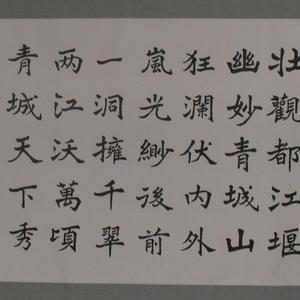 壮觀都江堰
幽妙青城山
狂瀾伏內外
嵐光緲後前
一洞擁千翠
两江沃萬頃
青城天下秀